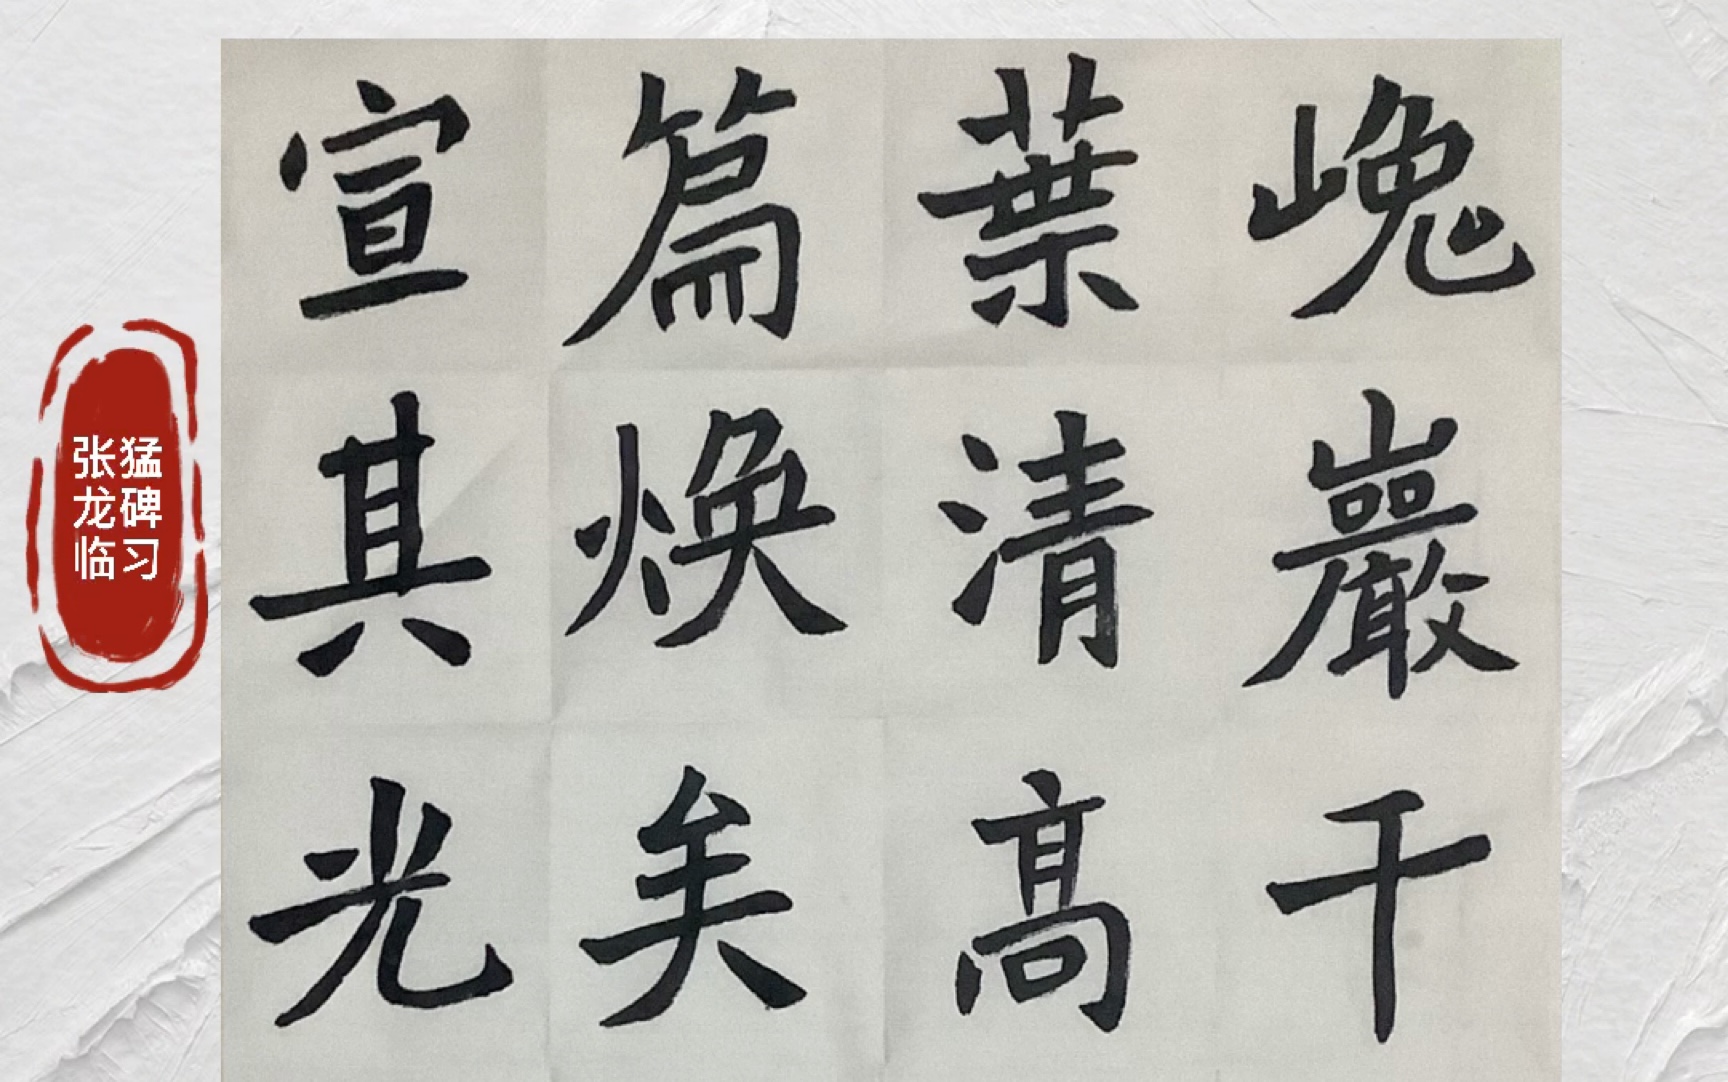 巉巖千
葉清高
篇煥矣
宣其光
张猛
龙碑
临习